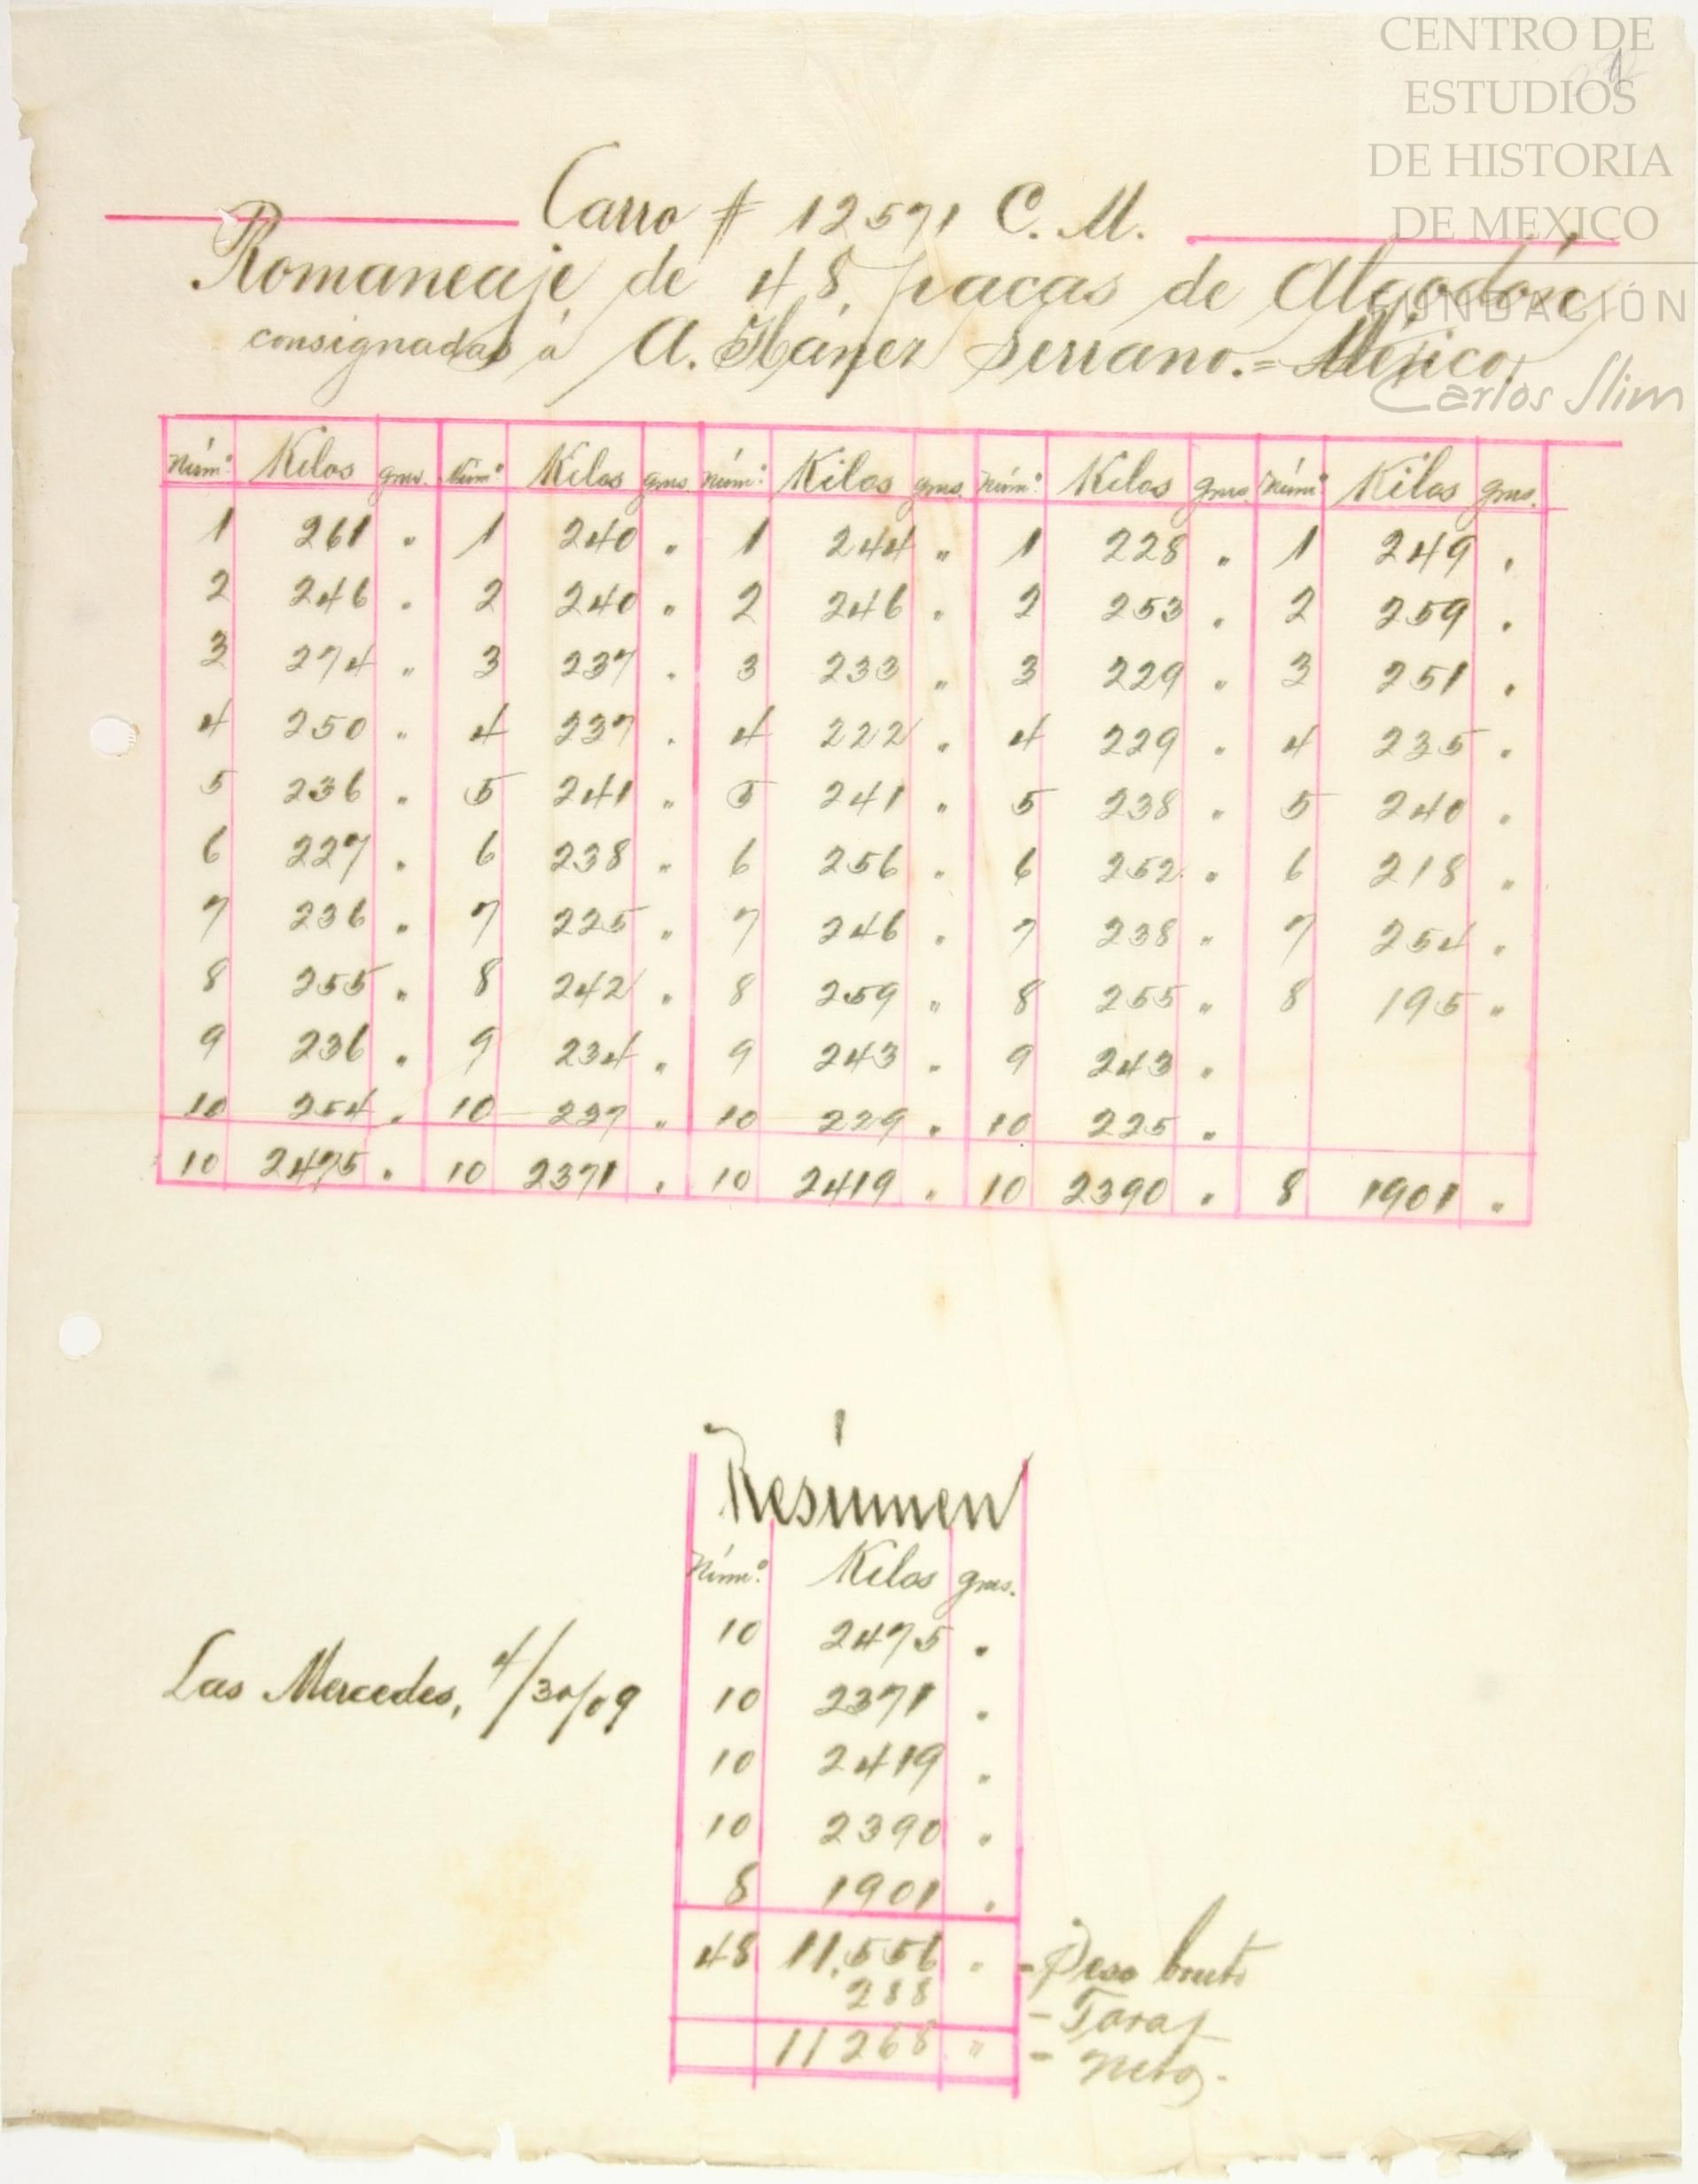 CENTRO DE
ESTUDIOS
DE HISTORIA
DE MEXICO
FUNDACIÓN
Carlos Slim
Carro # 12571 C. M.
Romaneaje de 48 pacas de Algodón,
consignadas á A. Ibáñez Serrano.=México.
Núm.º Kilos gms. Núm.º Kilos gms. Núm.º Kilos gms. Núm.º Kilos gms. Núm.º Kilos gms.
1 261 " 1 240 " 1 244 " 1 228 " 1 249 "
2 246 " 2 240 " 2 246 " 2 253 " 2 259 "
3 274 " 3 237 " 3 233 " 3 229 " 3 251 "
4 250 " 4 237 " 4 222 " 4 229 " 4 235 "
5 236 " 5 241 " 5 241 " 5 238 " 5 240 "
6 227 " 6 238 " 6 256 " 6 252 " 6 218 "
7 236 " 7 225 " 7 246 " 7 238 " 7 254 "
8 255 " 8 242 " 8 259 " 8 255 " 8 195 "
9 236 " 9 234 " 9 243 " 9 243 "
10 254 " 10 237 " 10 229 " 10 225 "
10 2475 " 10 2371 " 10 2419 " 10 2390 " 8 1901 "
Resúmen
Núm.º Kilos gms.
10 2475 "
Las Mercedes, 4/30/09
10 2371 "
10 2419 "
10 2390 "
8 1901 "
48 11,556 " - Peso bruto
288 - Tara
11268 " - Neto.